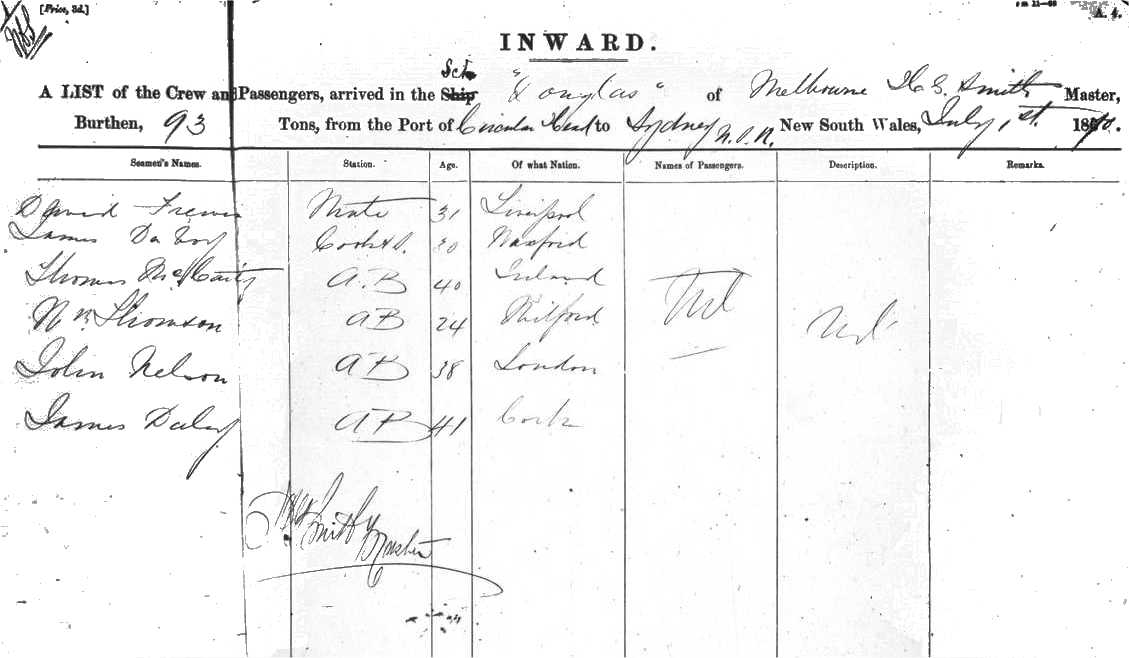 [Price, 3d.]
A. 4.
INWARD.
Sch
A LIST of the Crew and Passengers, arrived in the Ship "Douglas" of Melbourne H. G. Smith Master,
Burthen, 93 Tons, from the Port of Circular Head to Sydney N.S.W. New South Wales, July 1st. 18
Seamen's Names. Station. Age. Of what Nation. Names of Passengers. Description. Remarks.
David Mate 31 Liverpool
James Cook & S. 30
Thomas McCarty A.B 40 Ireland Nil
Wm Thomson AB 24 Milford Nil
John Nelson AB 38 London
James Daley AB 41 Cork
Smith
Master